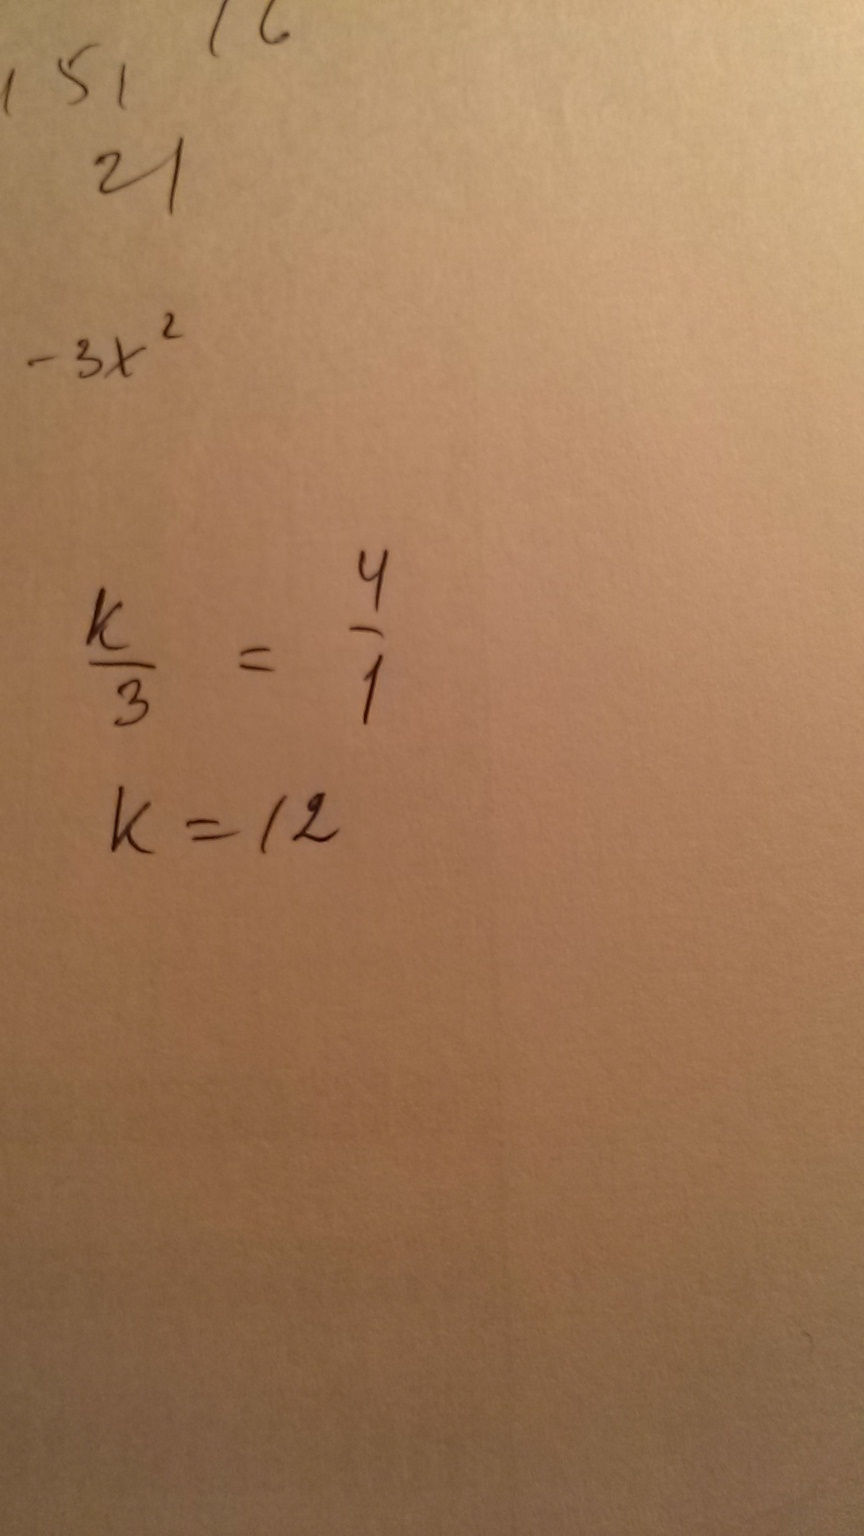 16
151
21
-3x²
k/3 = 4/1
k = 12